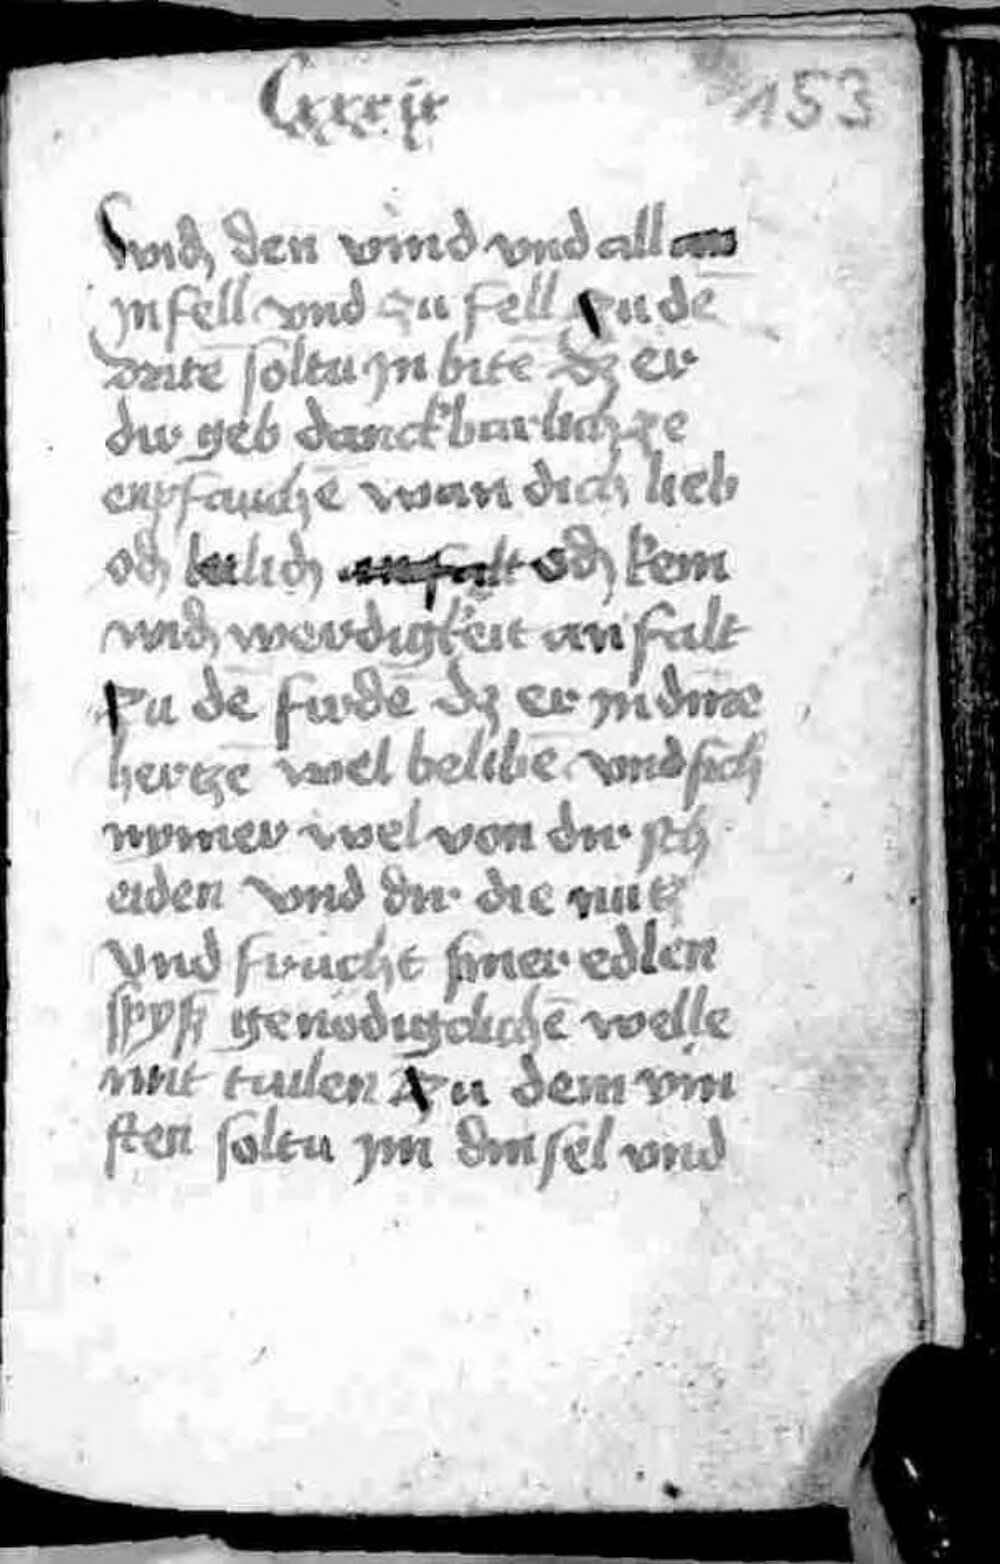 Cxxxij 153
wid den vind vnd all
jn fell vnd zu fell Zu dē
drite soltu jn bitē dz er
dir geb danckbarlich ze
enpfauchē wan dich lieb
od lidlich od kein
wid werdigkeit an falt
Zu dē fierdē dz er jn dinē
hertzē wel belibē vnd sich
nymer wel von dir sch
eiden vnd dir die nütz
vnd frucht siner edlen
spys genödigclichē welle
mit tailen Zu dem vin
ften soltu jm din sel vnd